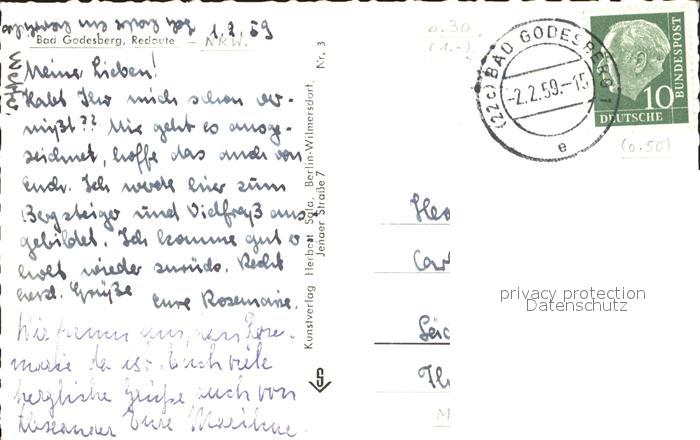 1.2.59
Bad Godesberg, Redoute - NRW.
Meine Lieben!
Habt Ihr mich schon ver-
mißt?? Mir geht es ausge-
zeichnet, hoffe das auch von
Euch. Ich werde hier zum
Bergsteiger und Vielfraß aus-
gebildet. Ich komme gut er-
holt wieder zurück. Recht
herzl. Grüße
Eure Rosemarie.
Wir freuen uns, dass Rose-
marie da ist. Euch viele
herzliche Grüße auch von
Eure Marlene.
Kunstverlag Herbert Sala, Berlin-Wilmersdorf,
Jenaer Straße 7
Nr. 3
0.30
(1.-)
(22c) BAD GODESBERG 1
-2.2.59.-15
e
10
DEUTSCHE
BUNDESPOST
(0.50)
privacy protection
Datenschutz